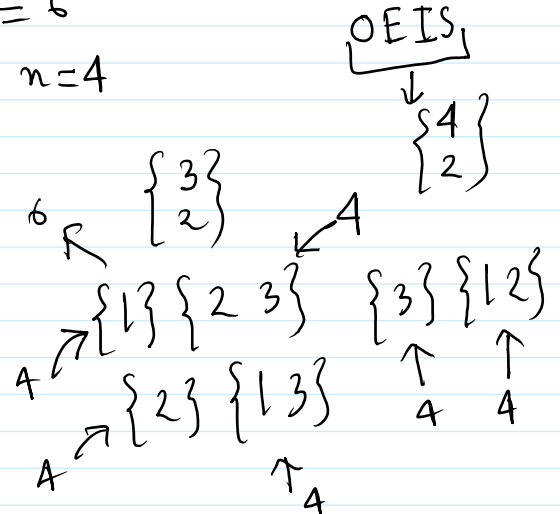 = 6
OEIS
n=4
↓
{4
2}
{3
2}
6
4
{1} {2 3} {3} {1 2}
4
{2} {1 3}
4 4
4
4